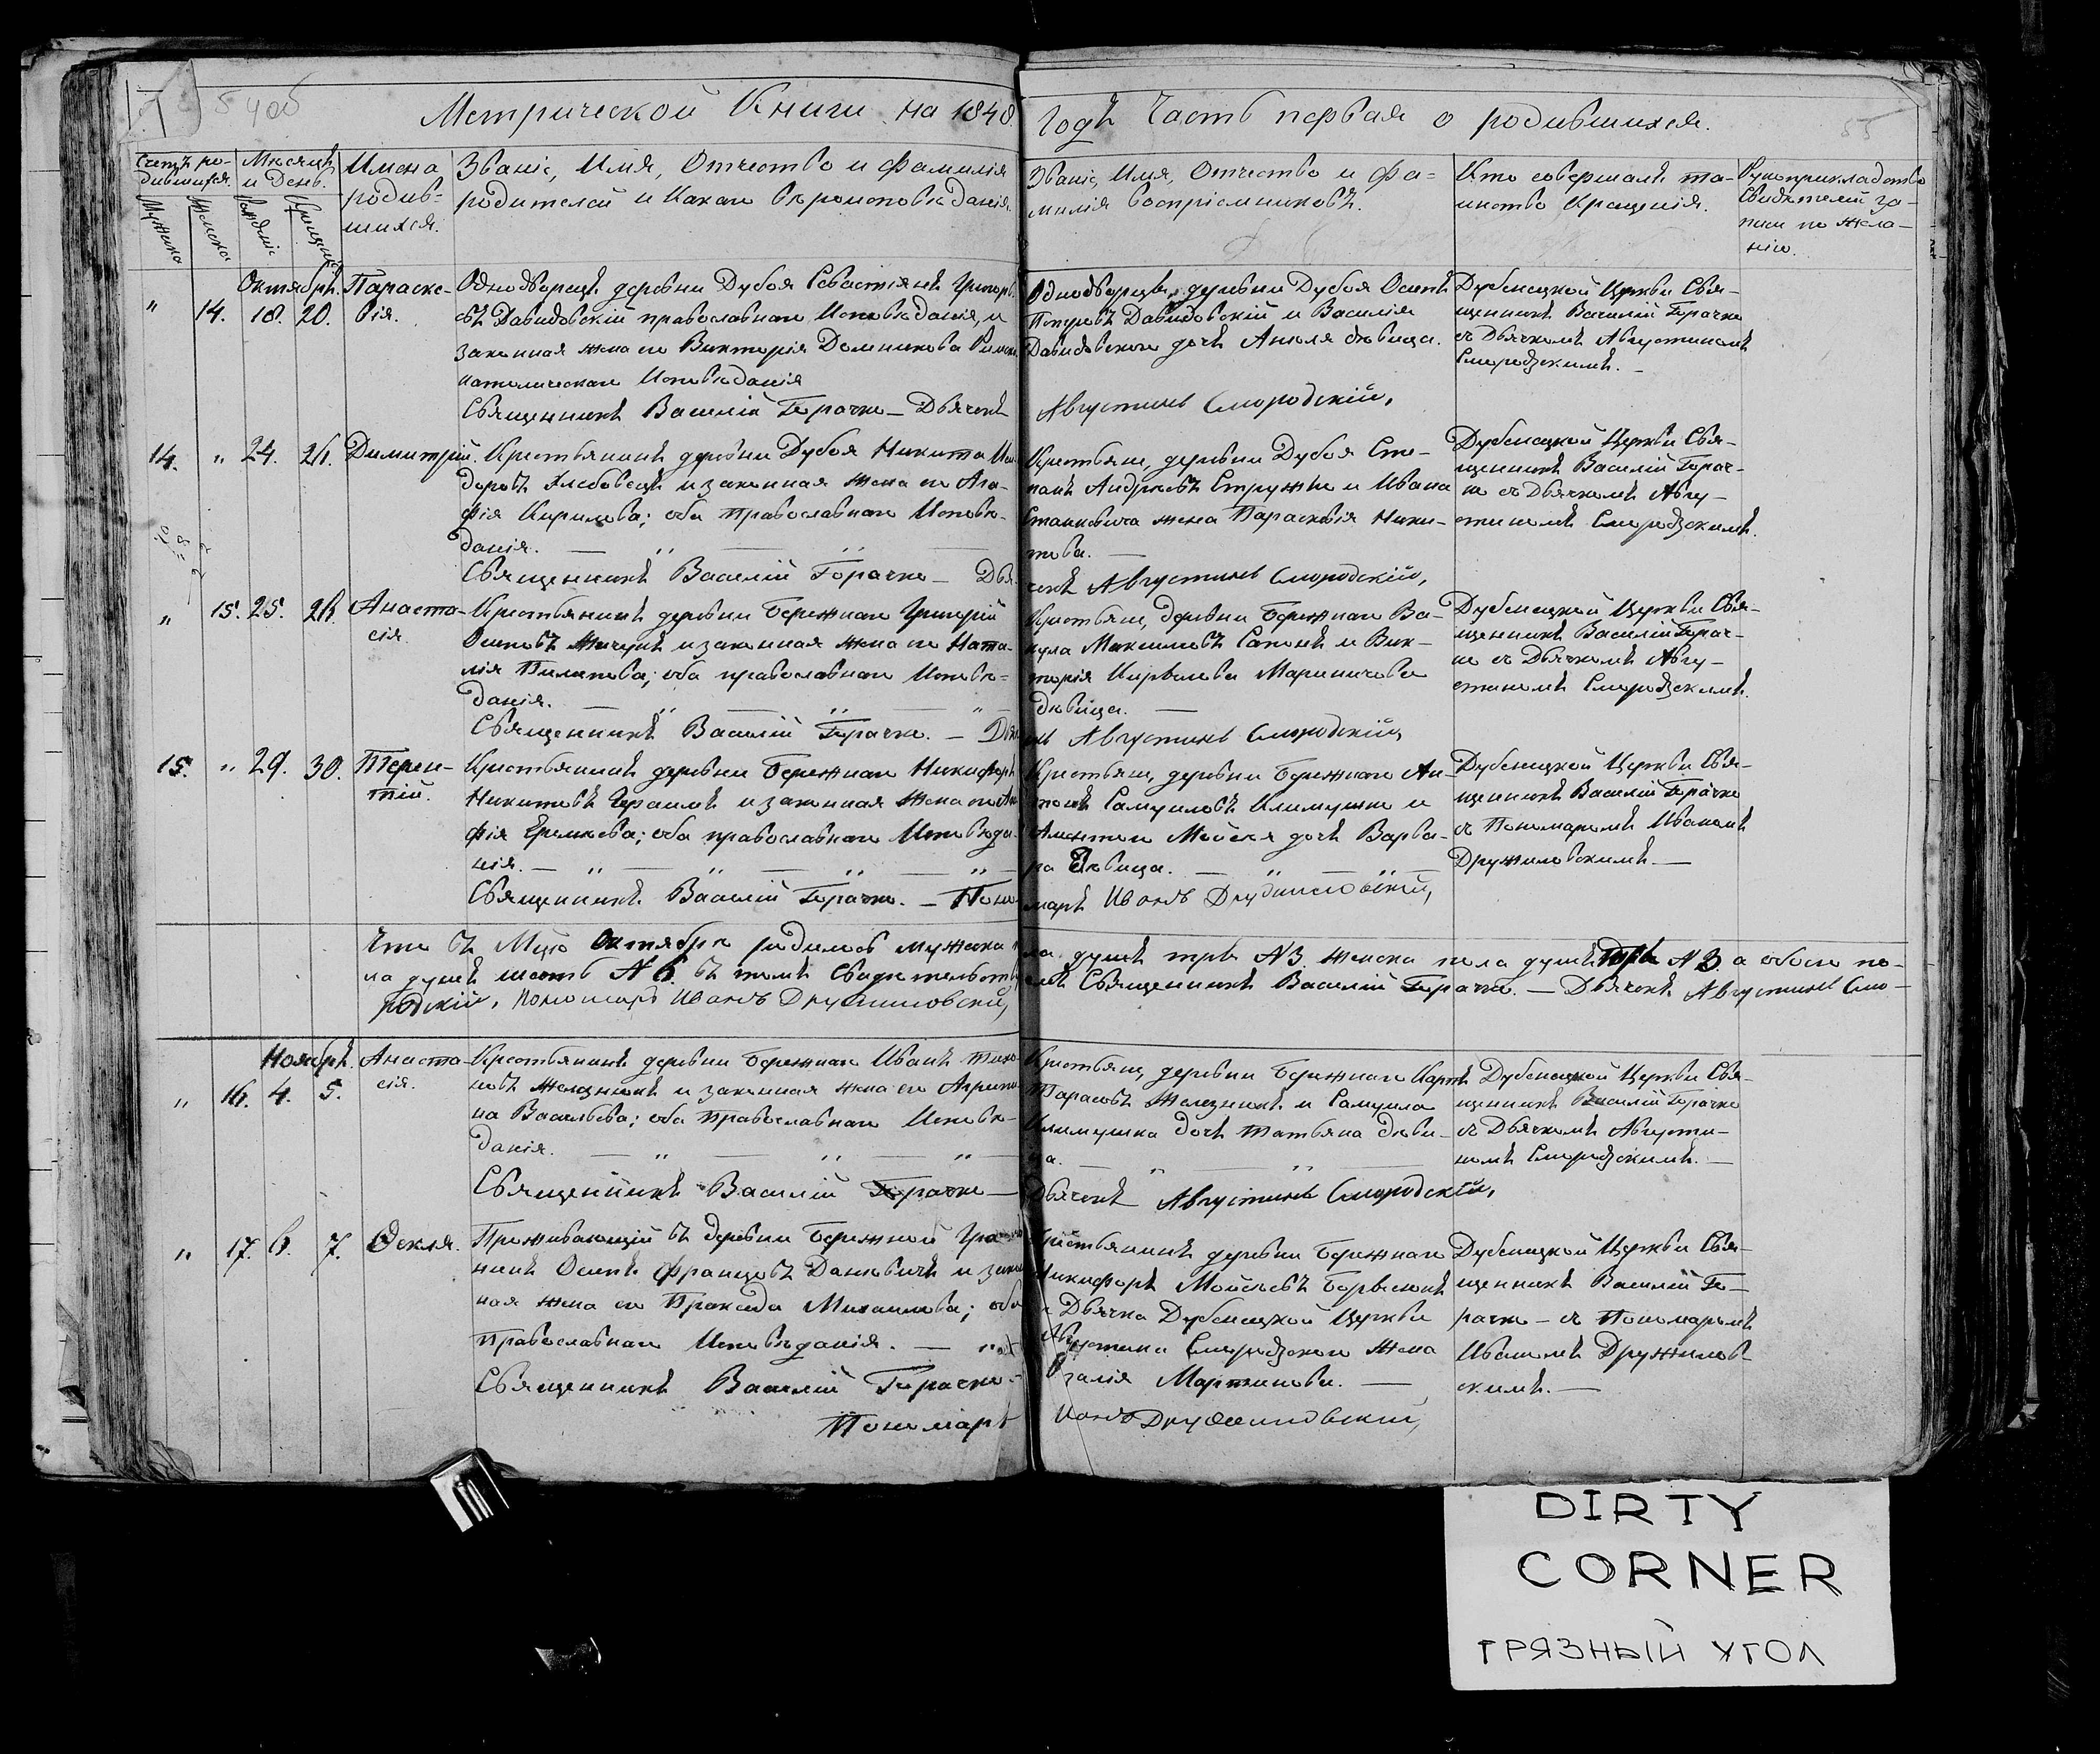 54об
55
Метрической Книги на 1848.
Годъ Часть первая о родившихся.
Счетъ ро-
дившихся.
Мужеска
Женска
Мѣсяцъ
и День.
Рожденія
Крещенія
Имена
родив-
шихся.
Званіе, Имя, Отчество и Фамилія
родителей и Какаго вѣроисповѣданія.
Званіе, Имя, Отчество и Фа-
милія воспріемниковъ.
Кто совершалъ та-
инство Крещенія.
Рукоприкладство
Свидѣтелей за-
писи по жела-
нію.
Октябрь.
" 14. 18. 20.
Параске-
вія.
Однодворецъ деревни Дубоя Севастіянъ Григорь-
евъ Давидовскій православнаго Исповѣданія, и
законная жена его Викторія Доминикова Римско
католическаго Исповѣданія
Священникъ Василій Горачко – Дьячекъ
Однодворцы, деревни Дубоя Осипъ
Петровъ Давидовскій и Василія
Давидовскаго дочь Анеля дѣвица.
Августинъ Смородскій,
Дубенецкой Церкви Свя-
щенникъ Василій Горачко
съ Дьячкомъ Августиномъ
Смородскимъ.
14. " 24. 26.
Димитрій.
Крестьянинъ деревни Дубоя Никита Иси-
доровъ Хлебовецъ и законная жена его Ага-
фія Кирилова; оба православнаго Исповѣ-
данія.
Священникъ Василій Горачко – Дья-
Крестьяне, деревни Дубоя Сте-
панъ Андреевъ Стружко и Ивана
Станкевича жена Параскевія Ники-
това.
чекъ Августинъ Смородскій,
Дубенецкой Церкви Свя-
щенникъ Василій Горач-
ко съ Дьячкомъ Авгу-
стиномъ Смородскимъ.
" 15. 25. 26.
Анаста-
сія.
Крестьянинъ деревни Бережнаго Григорій
Осиповъ и законная жена его Ната-
лія Пилипова; оба православнаго Исповѣ-
данія.
Священникъ Василій Горачко. – Дьяч
Крестьяне, деревни Бережнаго Ва-
кула Максимовъ и Вик-
торія Кирылова Мариничева
дѣвица.
къ Августинъ Смородскій,
Дубенецкой Церкви Свя-
щенникъ Василій Горач-
ко съ Дьячкомъ Авгу-
стиномъ Смородскимъ.
15. " 29. 30.
Терен-
тій.
Крестьянинъ деревни Бережнаго Никифоръ
Никитовъ и законная жена его Ага-
фія Еремѣева; оба православнаго Исповѣда-
нія.
Священникъ Василій Горачко. – Поно-
Крестьяне, деревни Бережнаго Ан-
тонъ Самуиловъ Климушко и
Мойсея дочь Варва-
ра дѣвица.
марь Иванъ Дружиловскій,
Дубенецкой Церкви Свя-
щенникъ Василій Горачко
съ Пономаремъ Иваномъ
Дружиловскимъ.
Что въ Мцѣ Октябрѣ родилось мужеска
ла душъ три №3. женска пола душъ три №3. а обоего по-
ла душъ шесть №6 въ томъ Свидѣтельству
емъ Священникъ Василій Горачко. – Дьячекъ Августинъ Смо-
родскій, пономарь Иванъ Дружиловскій,
Ноябрь.
" 16. 4. 5.
Анаста-
сія.
Крестьянинъ деревни Бережнаго Иванъ Тихо-
новъ Железникъ и законная жена его Агрипи-
на Васильева; оба православнаго Исповѣ-
данія.
Священникъ Василій Горачко –
Крестьяне, деревни Бережнаго Карпъ
Тарасовъ Железникъ и Самуила
Климушка дочь Татьяна дѣви-
ца.
Дьячекъ Августинъ Смородскій,
Дубенецкой Церкви Свя-
щенникъ Василій Горачко
съ Дьячкомъ Августи-
номъ Смородскимъ.
" 17. 6. 7.
Ѳекля.
Проживающій въ деревни Бережной Граж-
нинъ Осипъ Францовъ Данкевичъ и закон-
ная жена его Праксида Михаилова; оба
православнаго Исповѣданія.
Священникъ Василій Горачко –
Пономарь
Крестьянинъ деревни Бережнаго
Никифоръ Мойсѣевъ
и Дьячка Дубенецкой Церкви
Августина Смородскаго жена
Розалія Мартинова.
Иванъ Дружиловскій,
Дубенецкой Церкви Свя-
щенникъ Василій Го-
рачко – съ Пономаремъ
Иваномъ Дружилов-
скимъ.
DIRTY
CORNER
ГРЯЗНЫЙ УГОЛ